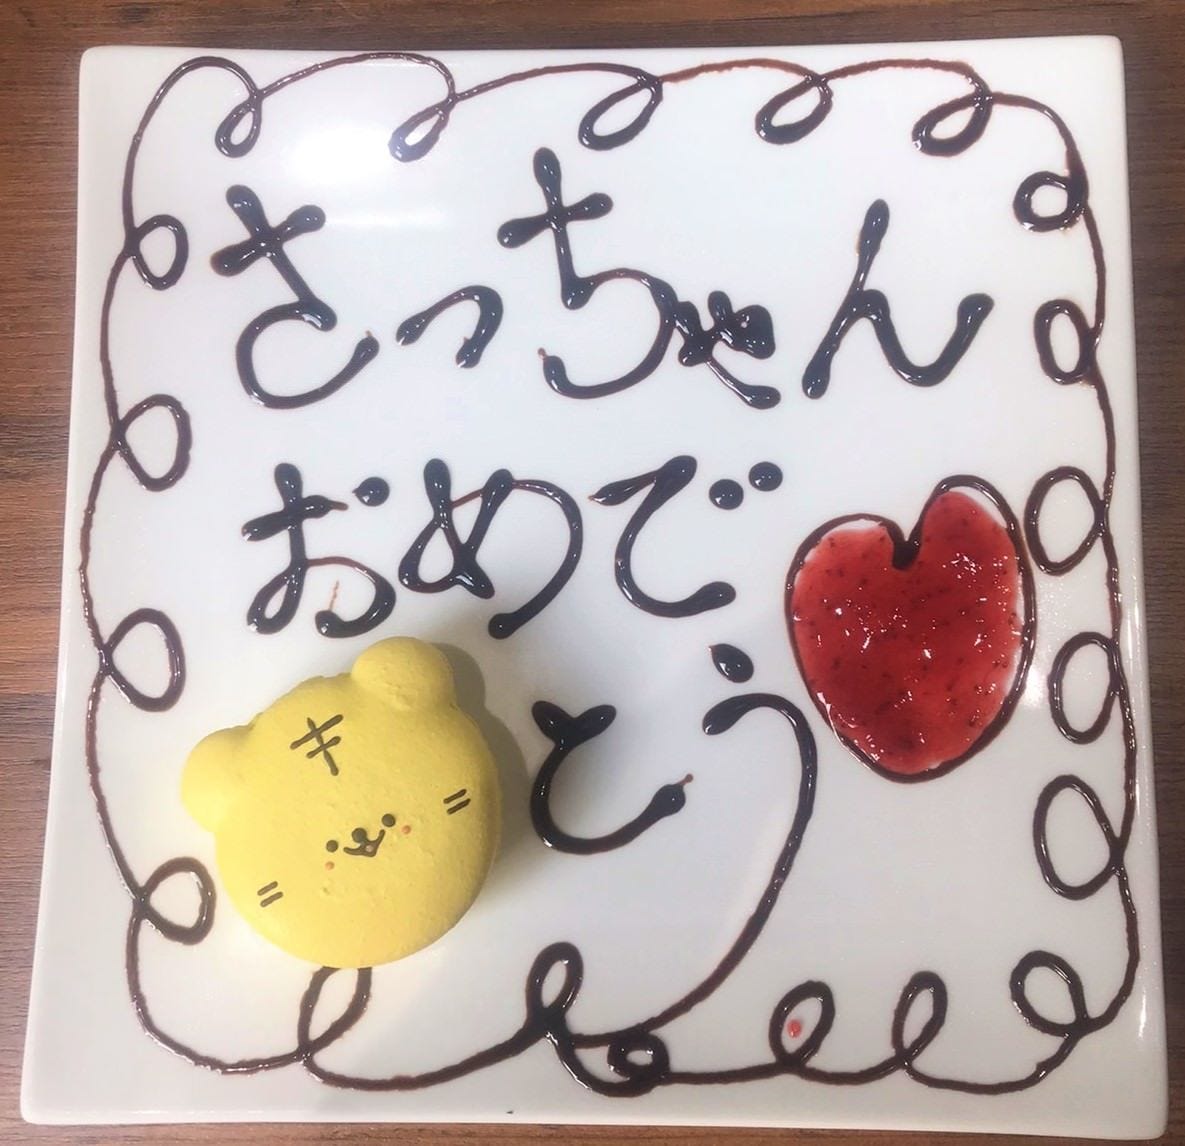 さっちゃん
おめで
とう